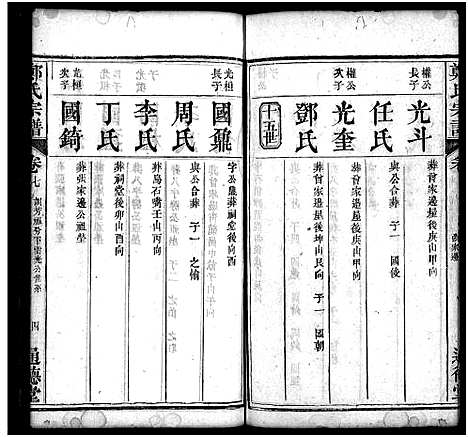 權公
長子
光斗
葬首家邊屋後庚山甲向
任氏
與公合葬 子一 國後
權公
次子
光奎
葬首家邊屋後庚山甲向
鄧氏
葬首家邊屋後坤山艮向 子一 國朝
十五世
光桓
長子
國鼐
字公鼎葬祠堂後向酉
周氏
與公合葬 子一 之愉
李氏
葬烏石嘴壬山丙向
丁氏
葬祠堂後卯山酉向
光桓
次子
國錡
葬張家邊公祖塋
鄭氏宗譜
卷七
四
通德堂